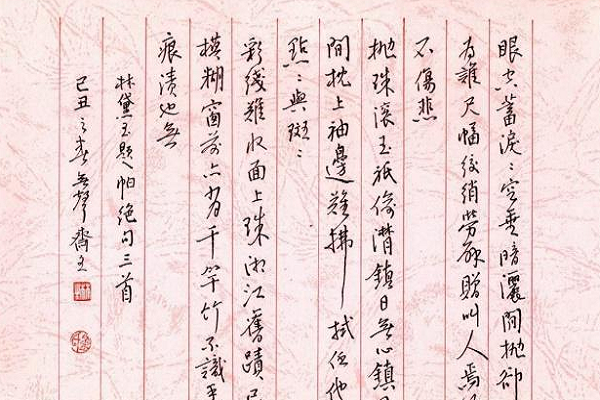 眼空蓄淚〻空垂暗灑閒拋卻
為誰尺幅絞綃勞解贈叫人焉
不傷悲
拋珠滾玉祇偷潸鎮日無心鎮日
閒枕上袖邊難拂拭任他
點〻與斑〻
彩綫難收面上珠湘江舊蹟已
模糊窗前亦有千竿竹不識香
痕漬也無
林黛玉題帕絕句三首
己丑之春無聲齋主